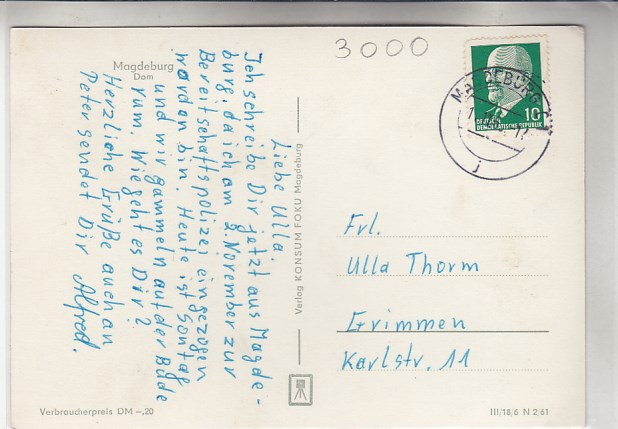 3000
Magdeburg
Dom
Liebe Ulla!
Ich schreibe Dir jetzt aus Magde-
burg, da ich am 2. November zur
Bereitschaftspolizei eingezogen
worden bin. Heute ist Sontag
und wir gammeln auf der Bude
rum. Wie geht es Dir?
Herzliche Grüße auch an
Peter sendet Dir Alfred.
Verlag KONSUM FOKU Magdeburg
MAGDEBURG
j
10
DEUTSCHE
DEMOKRATISCHE REPUBLIK
Frl.
Ulla Thorm
Grimmen
Karlstr. 11
Verbraucherpreis DM –,20
III/18/6 N 2/61